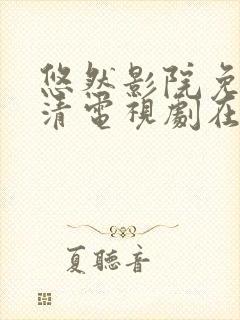 悠然影院免
清電視劇在
夏聽音